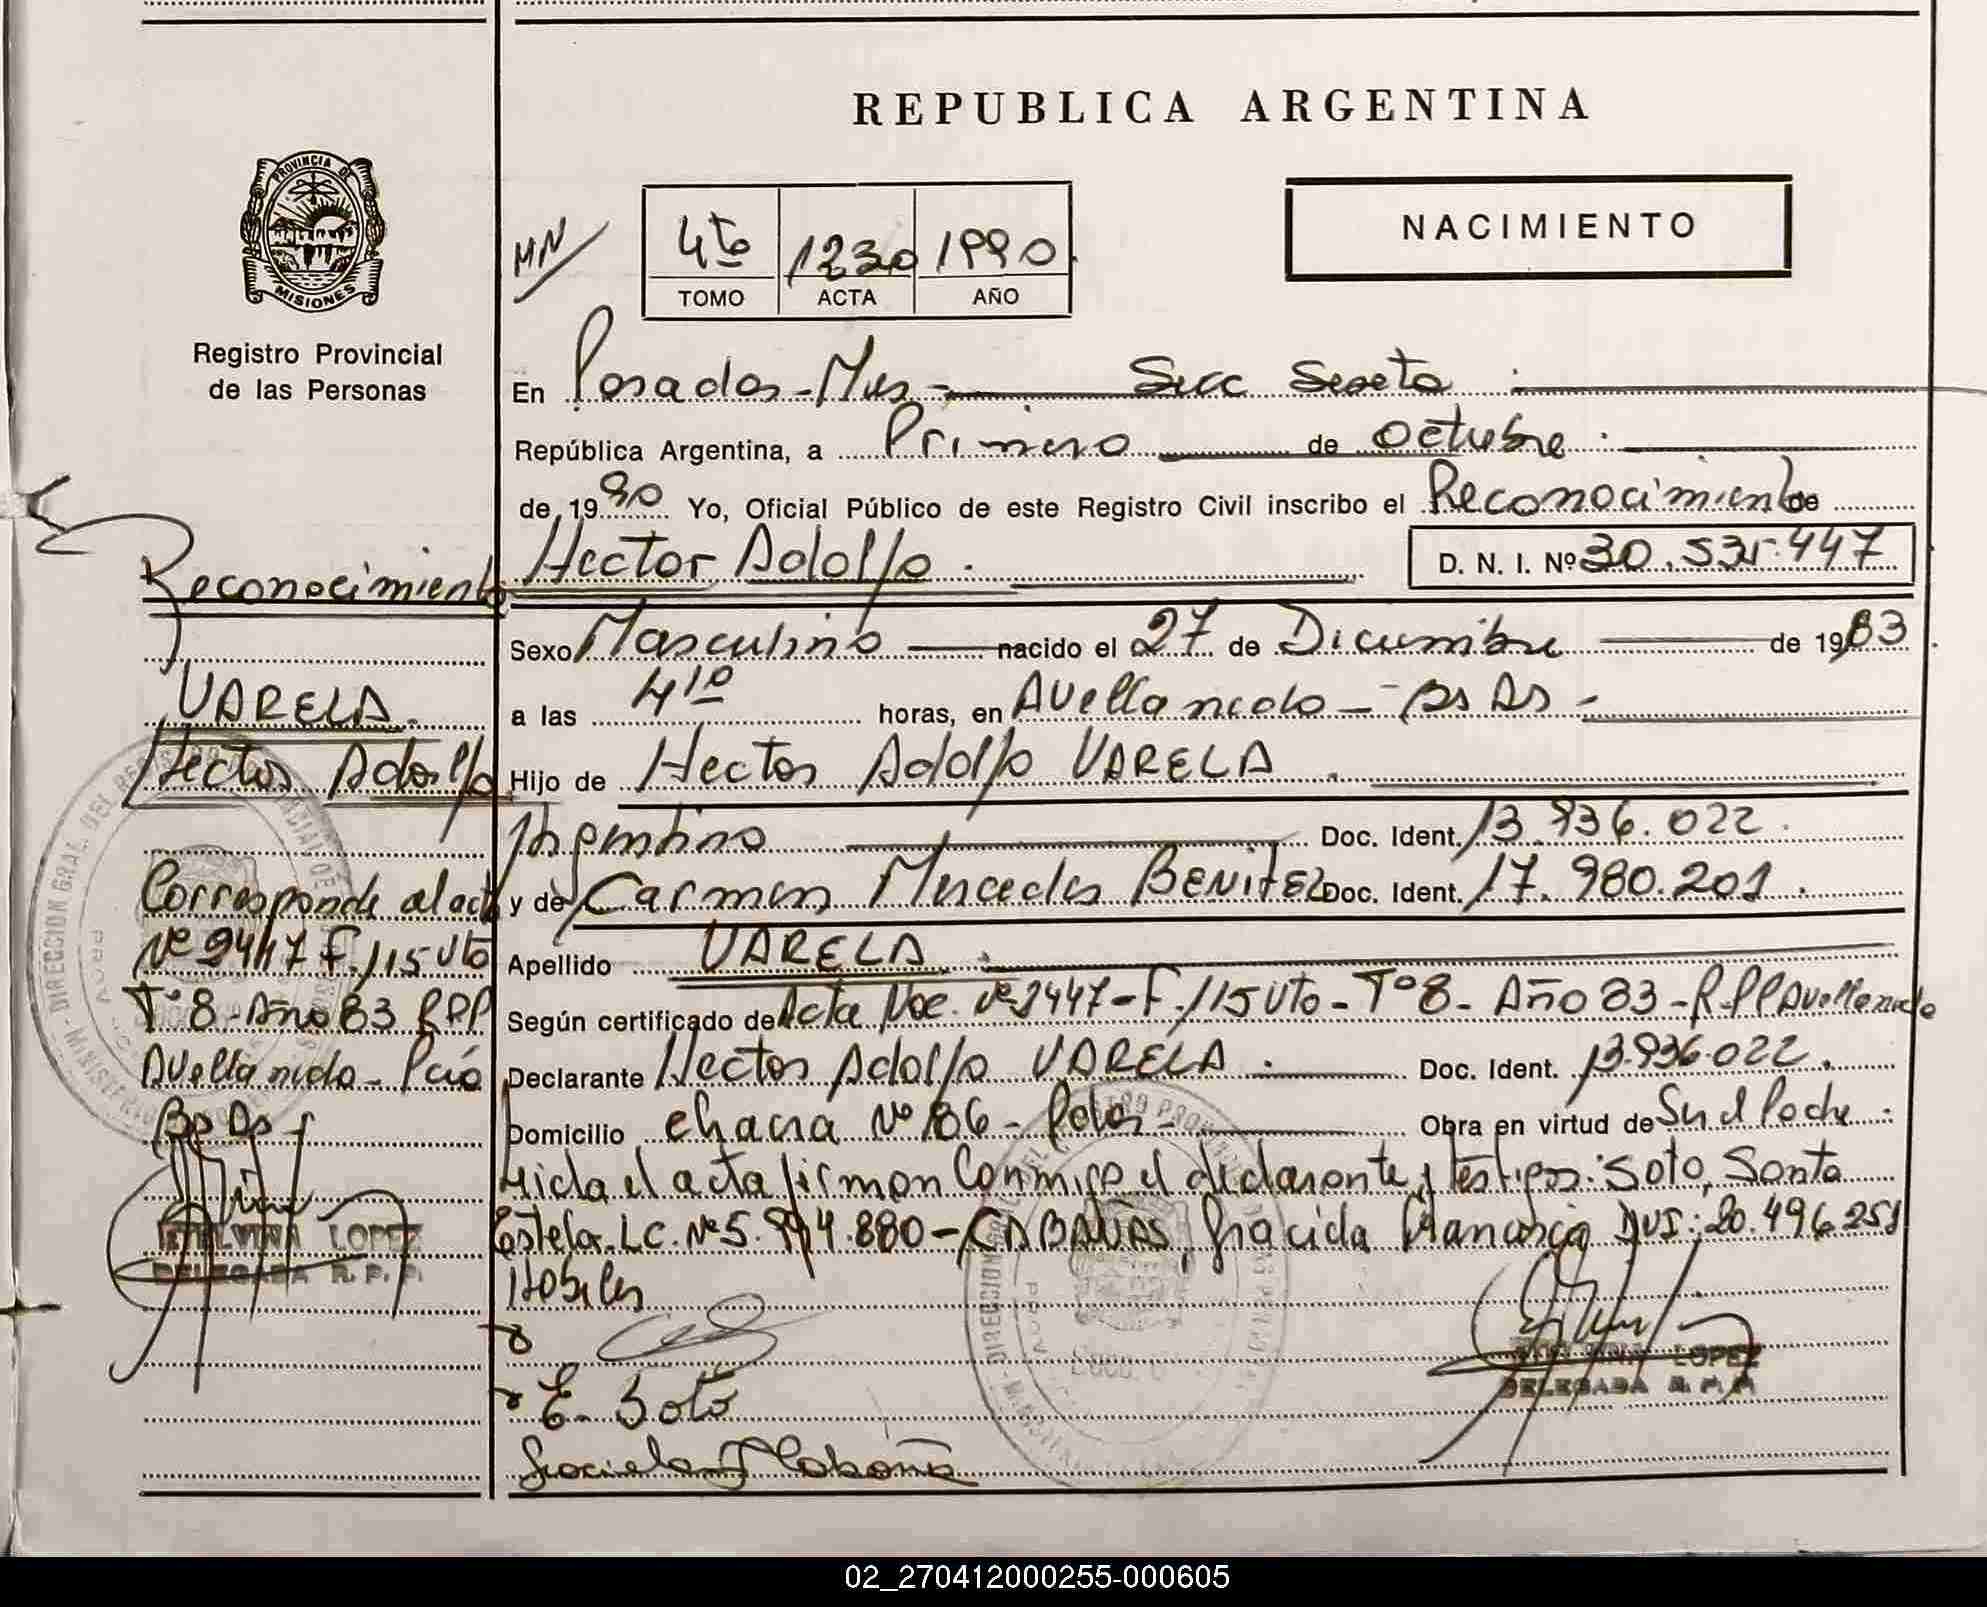 REPUBLICA ARGENTINA
PROVINCIA DE
MISIONES
Registro Provincial
de las Personas
NACIMIENTO
4to 1230 1990
TOMO ACTA AÑO
En Posadas-Mnes- Secc Sexta
República Argentina, a Primero de octubre
de 1990 Yo, Oficial Público de este Registro Civil inscribo el Reconocimiento de
Hector Adolfo. D. N. I. Nº 30.535.447
Sexo Masculino nacido el 27 de Diciembre de 1983
a las 4 10 horas, en Avellaneda - Bs As -
Hijo de Hector Adolfo VARELA
Argentino Doc. Ident. 13.936.022
y de Carmen Mercedes BENITEZ Doc. Ident. 17.980.201.
Apellido VARELA
Según certificado de Acta Nac. Nº 2447-F./115 Vto-Tº8-Año 83-R.P.P Avellaneda
Declarante Hector Adolfo VARELA. Doc. Ident. 13.936.022.
Domicilio chacra Nº 86- Pdas- Obra en virtud de Sn el Poche
Leida el acta firman conmigo el declarante y testigos: Soto, Santa
Estela. L.C. Nº 5. .880-CABAÑAS, Graciela DNI: 20.496.251
Habiles
E. Soto
Graciela F Cabaña
LOPEZ
DELEGADA R.P.P.
Reconocimiento
VARELA.
Hector Adolfo
Corresponde al acta
Nº 2447 F./115 Vto
Tº 8-Año 83 RPP
Avellaneda- Pcia
Bs As
ETELVINA LOPEZ
DELEGADA R.P.P.
02_270412000255-000605